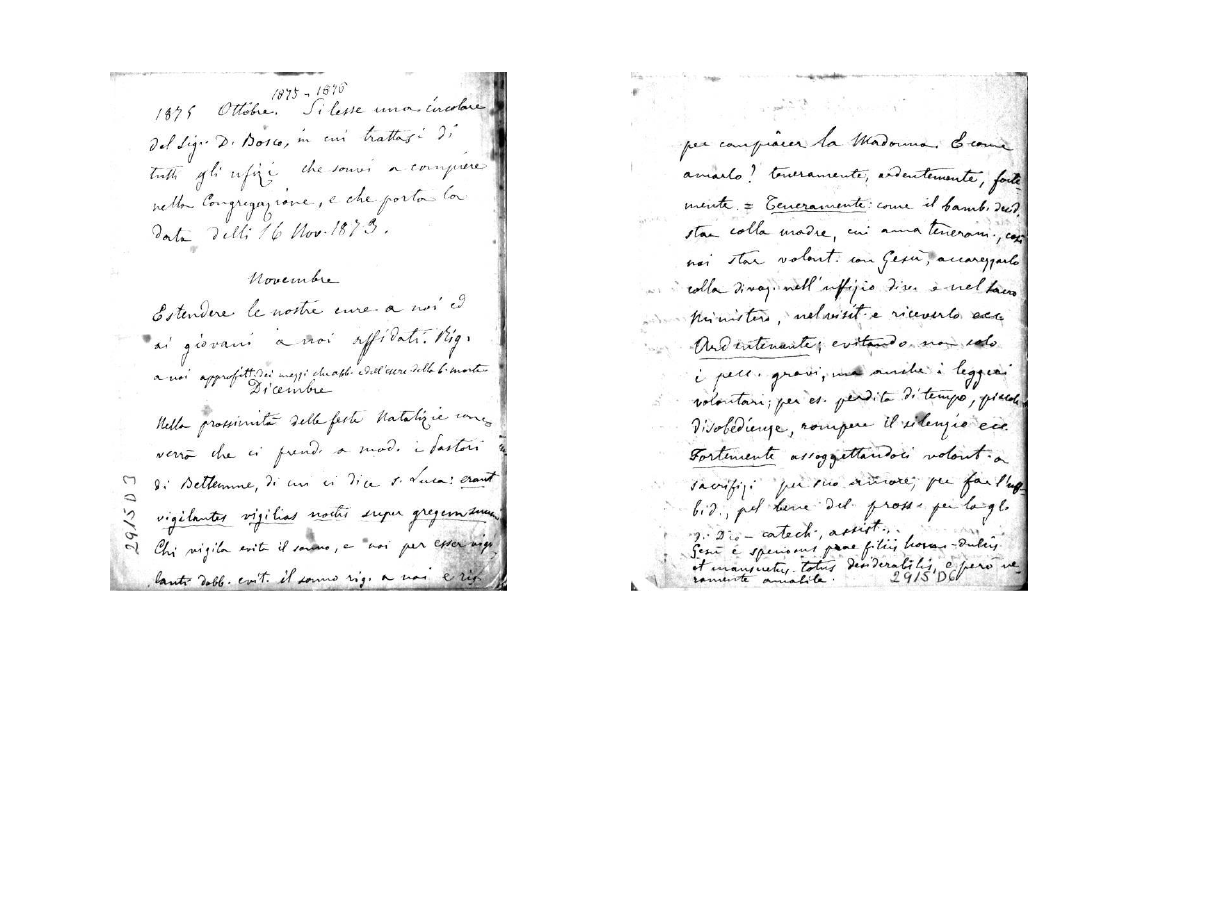 1875 - 1876
1875 Ottobre. Si lesse una circolare
del Sig. D. Bosco, in cui trattasi di
tutti gli ufizi che sonvi a compiere
nella Congregazione, e che porta la
data delli 16 Nov. 1873.
Novembre
Estendere le nostre cure a noi ed
ai giovani a noi affidati. Rig.
a noi approfitt. dei mezzi che abb. e dell'
Dicembre
Nella prossimità delle feste Natalizie con=
verrà che ci prend. a mod. i Pastori
di Bettemme, di cui ci dice s. Luca: erant
vigilantes vigilias noctis super gregem suum
Chi vigila evita il sonno, e noi per esser vigi-
lanti dobb. evit. il sonno rig. a noi e ris.
2915 D 3
per compiacer la Madonna. E come
amarlo? teneramente, ardentemente, forte
mente. = Teneramente: come il bamb. desid.
star colla madre, cui ama teneram., così
noi star volont. con Gesù, accarezzarlo
colla divoz. nell'uffizio div. e nel sacro
Ministero, nel visit. e riceverlo ecc.
Ardentemente; evitando non solo
i pecc. gravi, ma anche i leggeri
volontari; per es. perdita di tempo, piccole
disobedienze, rompere il silenzio ecc
Fortemente assoggettandoci volont. a
sacrifizi per suo amore; per far l'
bid., pel bene del pross. per la glo
r. Dio - catech., assist..
Gesù è speciosus prae filiis hom. - dulcis
et mansuetus. totus desiderabilis, e però ve-
ramente amabile.
2915 D6